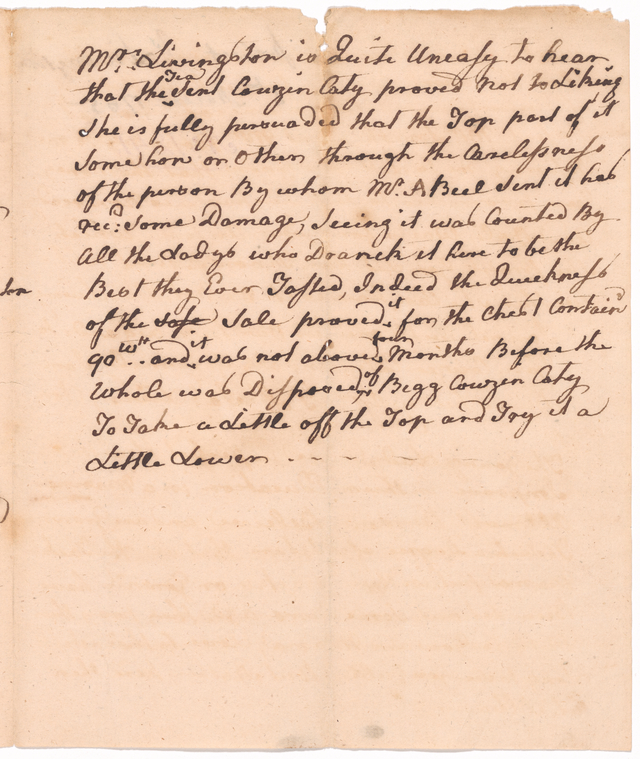 Mrs. Livingston is Quite Uneasy to hear
that the Tea Sent Couzin Caty proved not to Liking
She is fully persuaded that the Top part of it
Some how or Other through the Carelessness
of the person By whom Mr. A Beel Sent it has
recd: Some Damage, Seeing it was Counted By
all the Ladys who Dranck it here to be the
Best they Ever Tasted, Indeed the Quickness
of the safe Sale proved it, for the Chest Containd
90 wt. and it was not above four Months Before the
Whole was Disposed of, Begg Couzin Caty
To Take a Little off the Top and Try it a
Little Lower - - - -